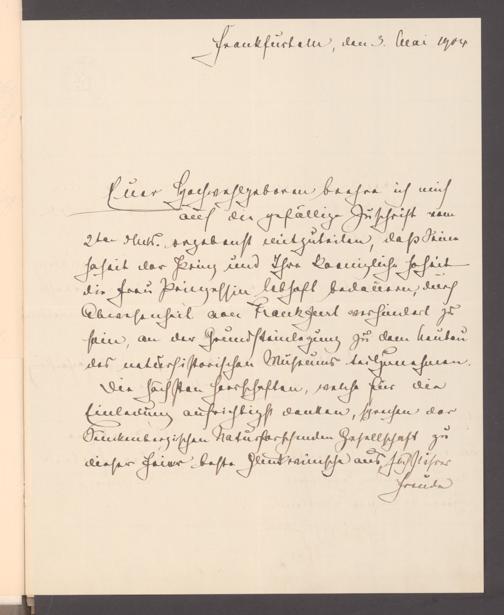 Frankfurt a/M, den 3. Mai 1904
Euer Hochwohlgeboren beehre ich mich
auf die gefällige Zuschrift vom
2ten d. Mts. ergebenst mitzuteilen, daß Seine
Hoheit der Prinz und Ihre Koenigliche Hoheit
die Frau Prinzessin lebhaft bedauern, durch
Abwesenheit von Frankfurt verhindert zu
sein, an der Grundsteinlegung zu dem Neubau
des naturhistorischen Museums teilzunehmen.
Die Höchsten Herrschaften, welche für die
Einladung aufrichtigst danken, sprechen der
Senkenbergischen Naturforschenden Gesellschaft zu
dieser Feier beste Glückwünsche aus,
Freude